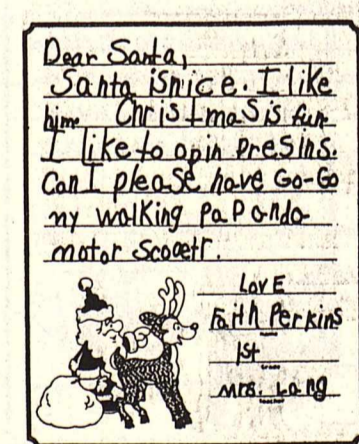 Dear Santa,
Santa isnice. I like
him Christmas is fun
I like to opin presins.
Can I please have Go-Go
my walking PaP ando
motor Scooetr.
LovE
Faith Perkins
Name
1st
Grade
Mrs. Lang
Teacher